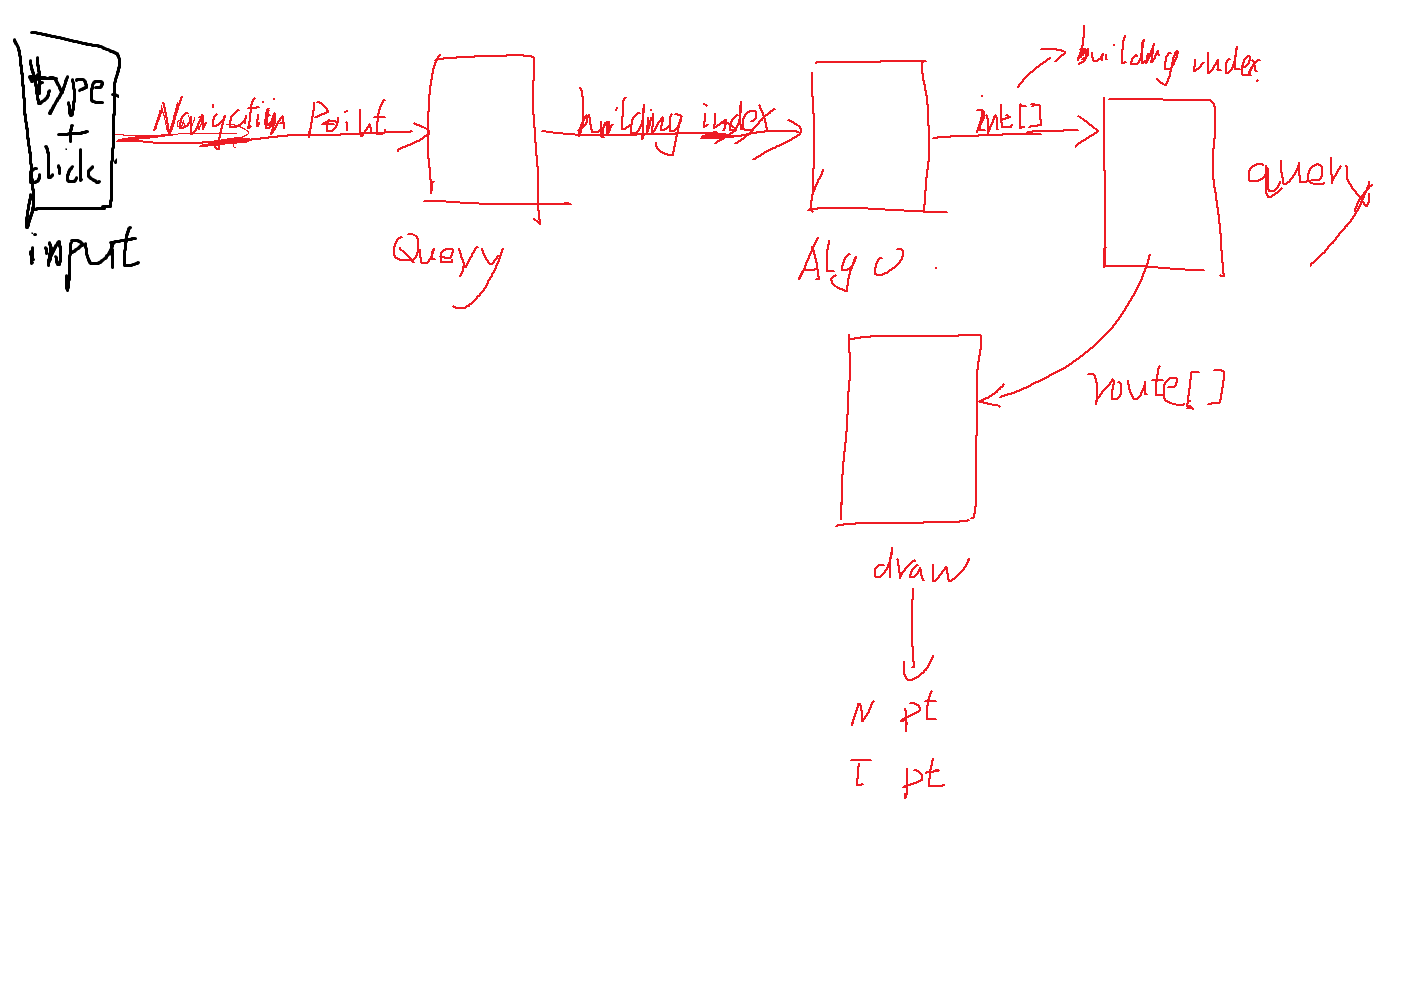 type
+
click
input
Navigation Point
Query
building index
Algo
int[]
building index
query
route[]
draw
N pt
I pt